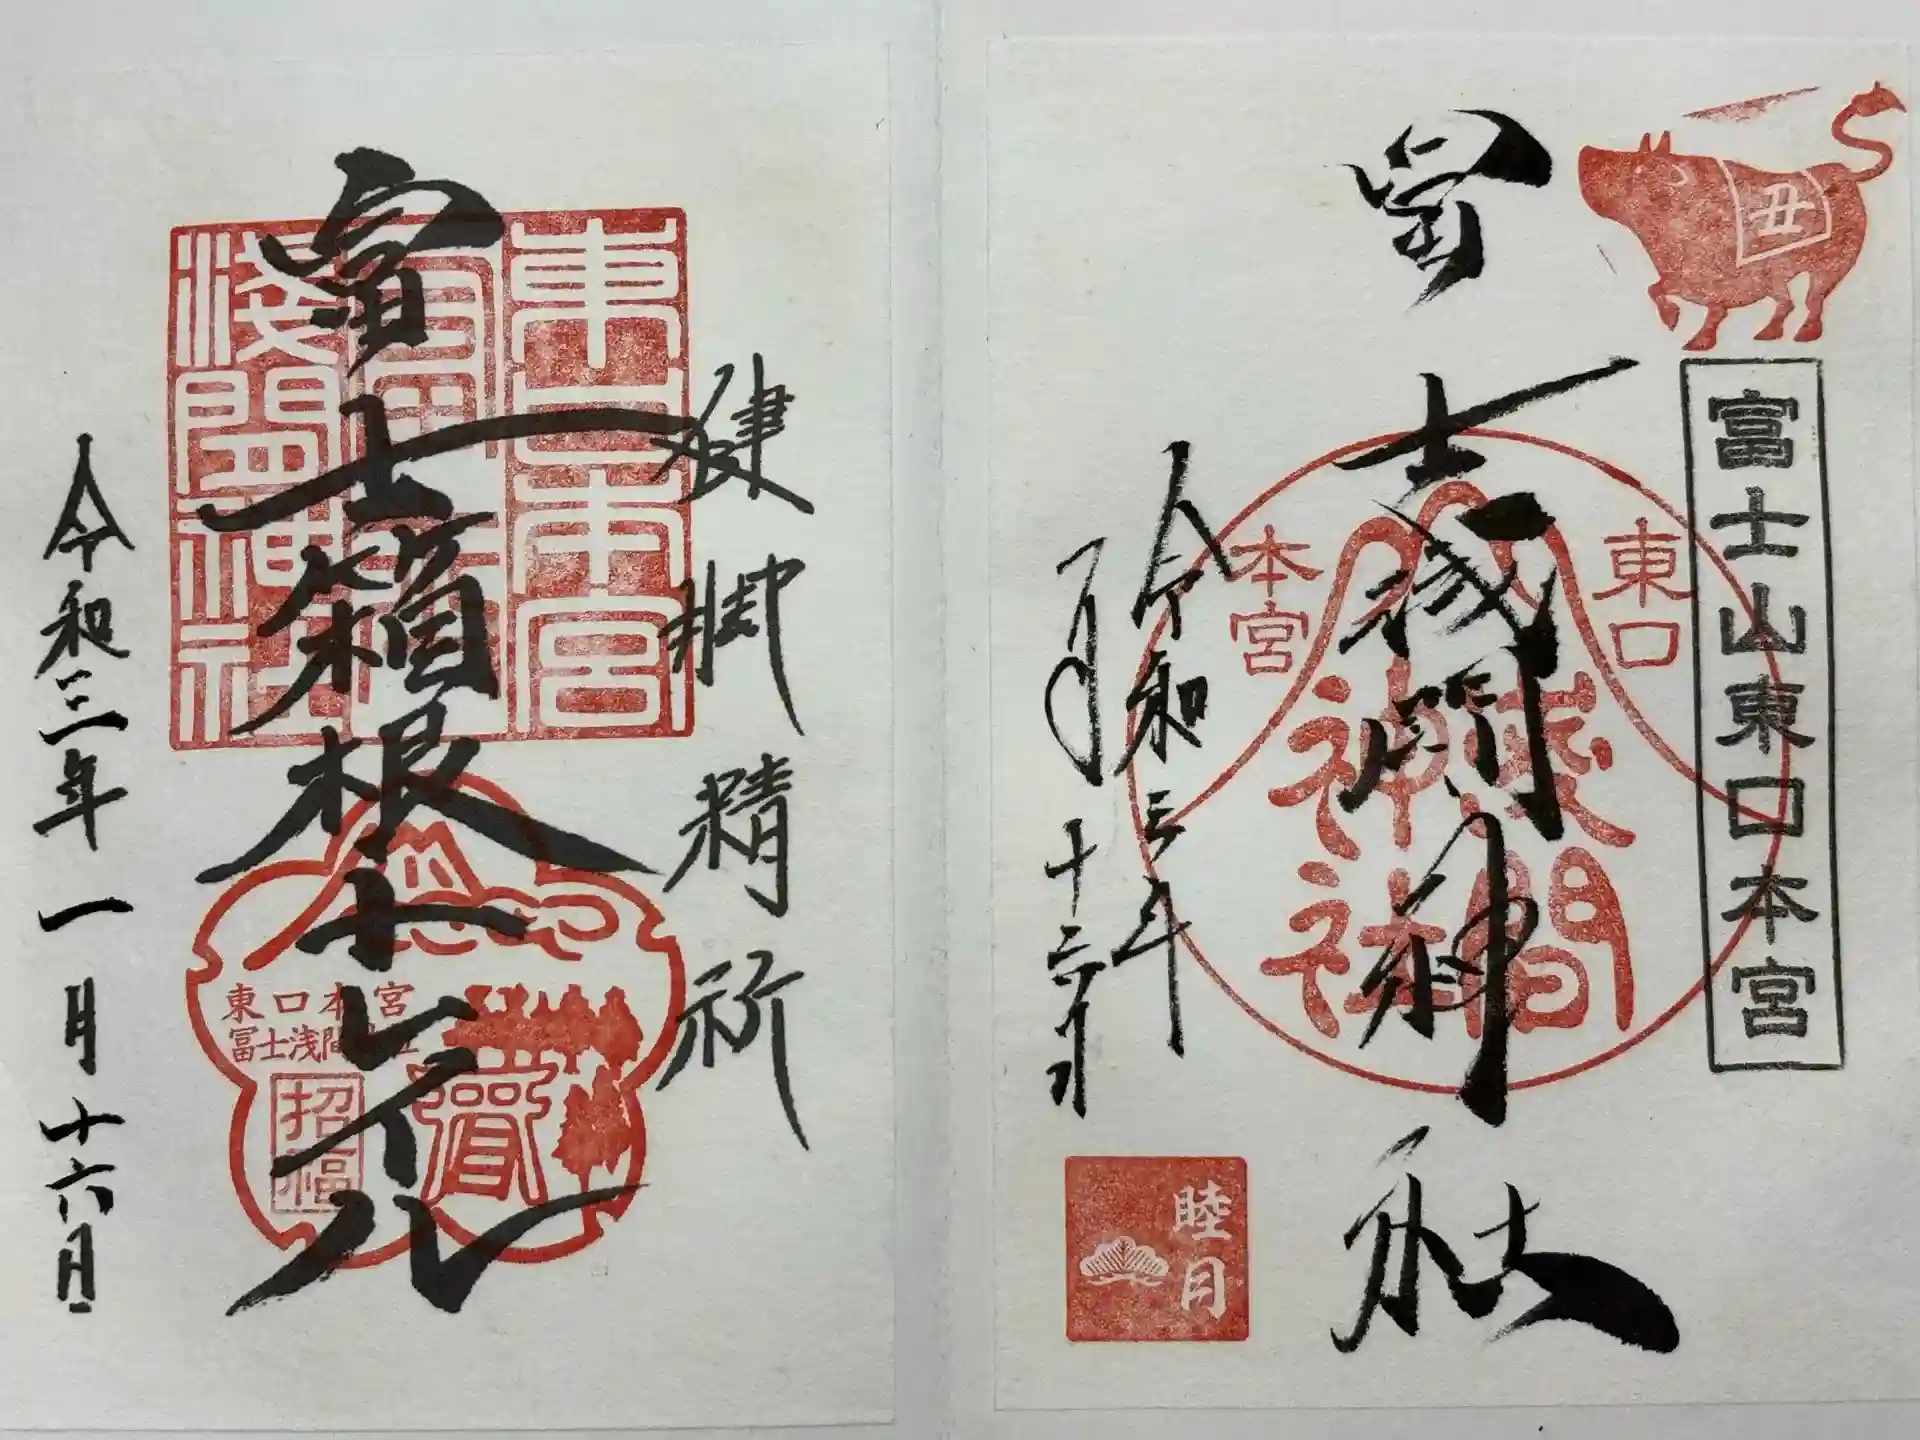 丑
富士山東口本宮
冨士浅間神社
東口
本宮
浅間
神社
令和三年
一月
十六日
睦月
健脚精祈
富士箱根トレイル
東口本宮
冨士浅間神社
招福
令和三年一月十六日